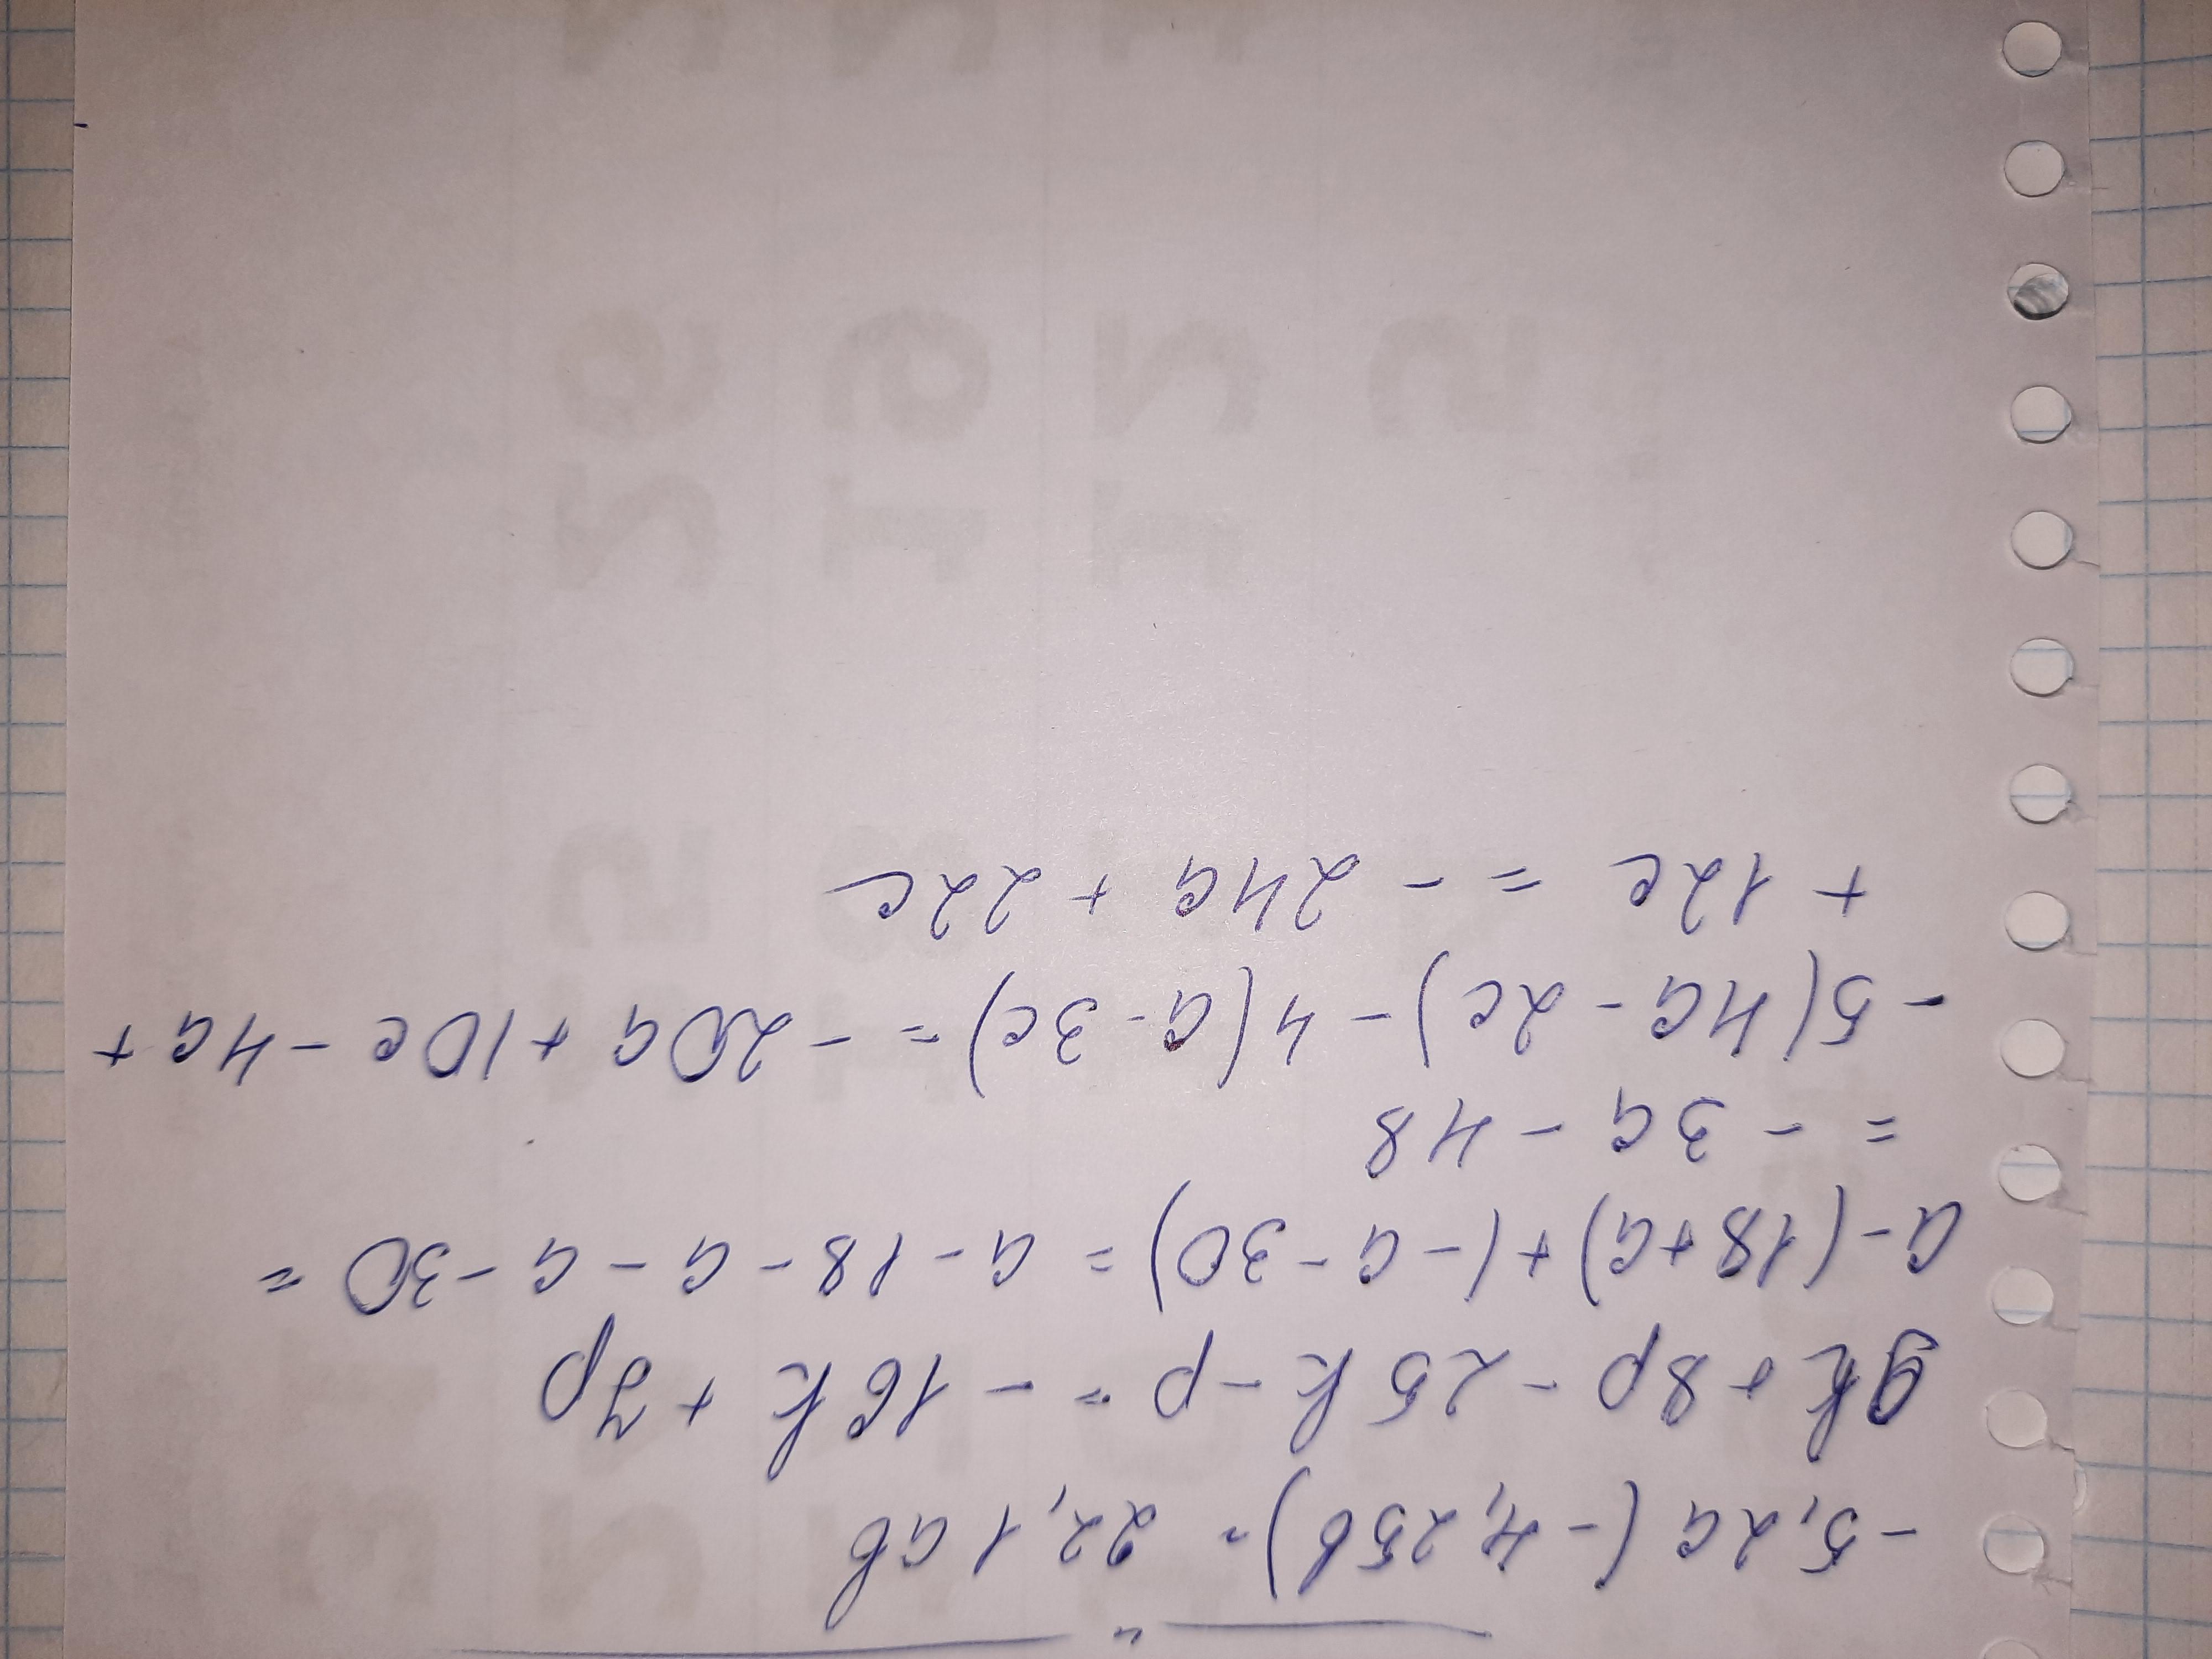 -5,2a (-4,25b) = 22,1ab
9k+8p - 25k - p = - 16k + 7p
a-(18+a)+(-a-30) = a-18-a-a-30 =
= -3a -48
-5(4a-2c) - 4(a-3c) = -20a+10c-4a+
+12c = -24a+22c